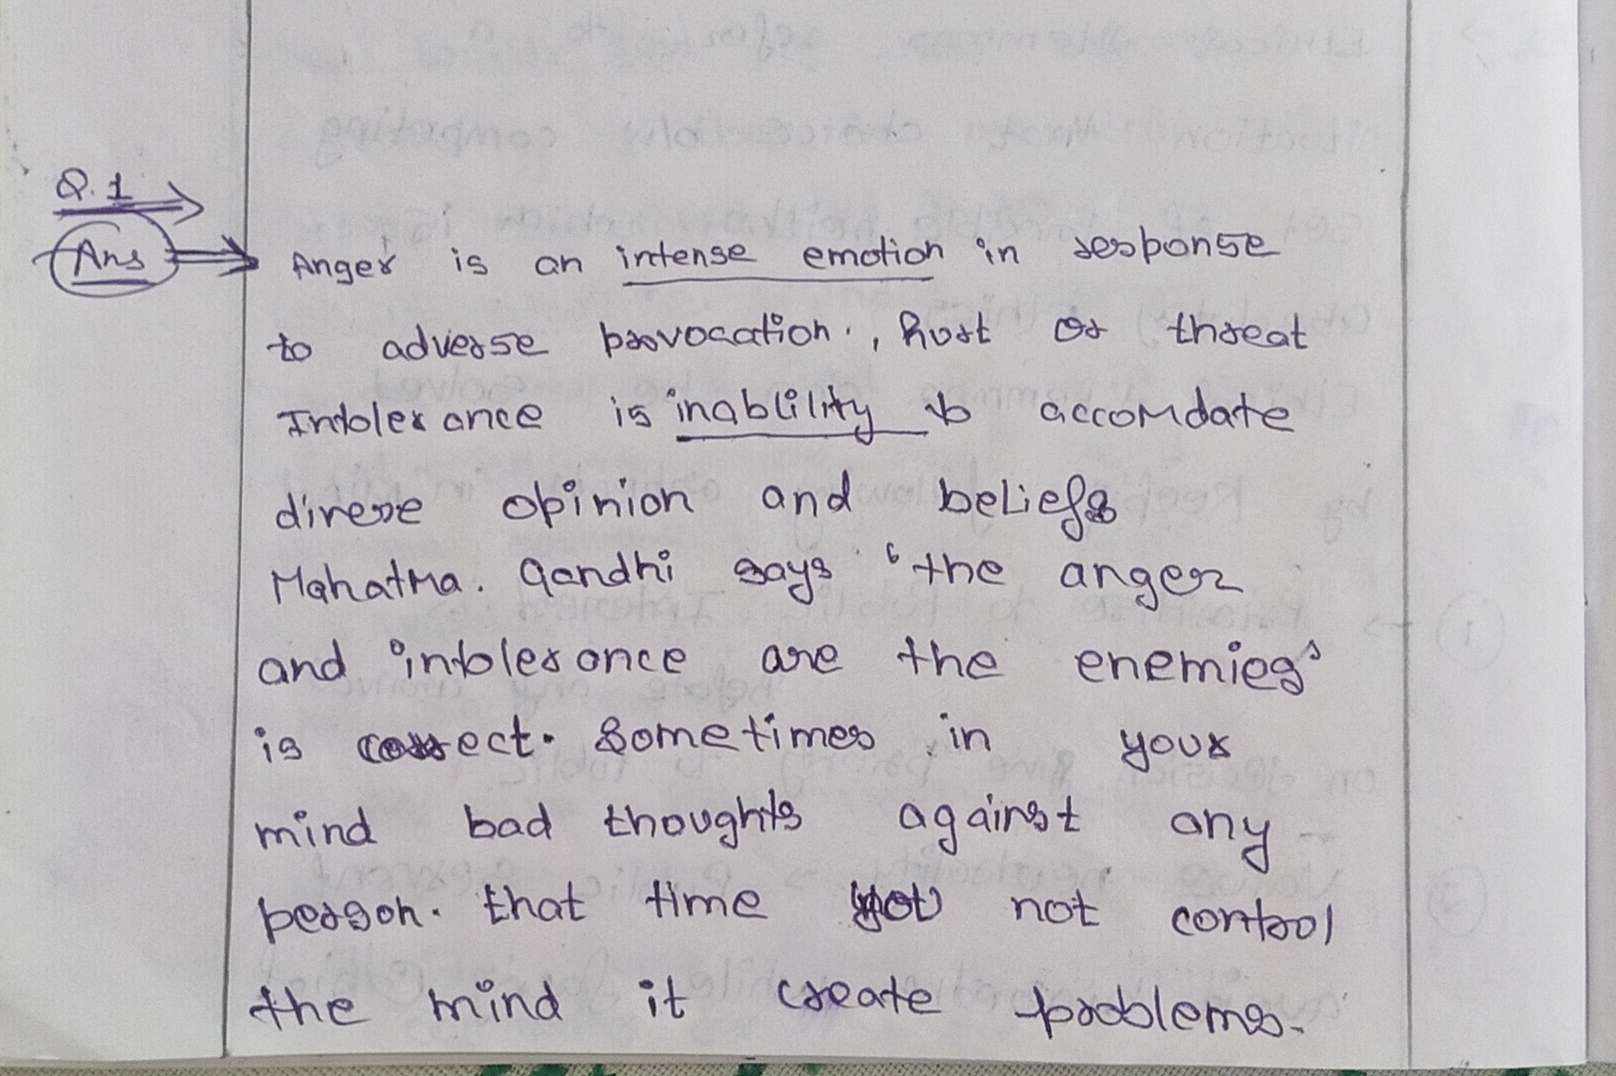 Q.1
Ans
Anger is an intense emotion in response
to adverse provocation., hurt or threat
Intolerance is inablility to accomdate
direse opinion and beliefs
Mahatma. Gandhi says 'the anger
and intolerance are the enemies'
is correct. Sometimes in your
mind bad thoughts against any
person. that time you not control
the mind it create problems.